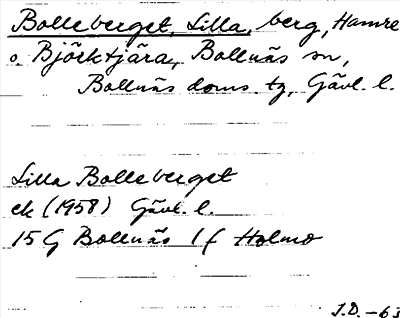 Bolleberget, Lilla, berg, Hamre
o. Björktjära, Bollnäs sn,
Bollnäs doms. tg, Gävl. l.
Lilla Bolleberget
ek (1958) Gävl. l.
15 G Bollnäs 1 f Holmo
J.D. -63